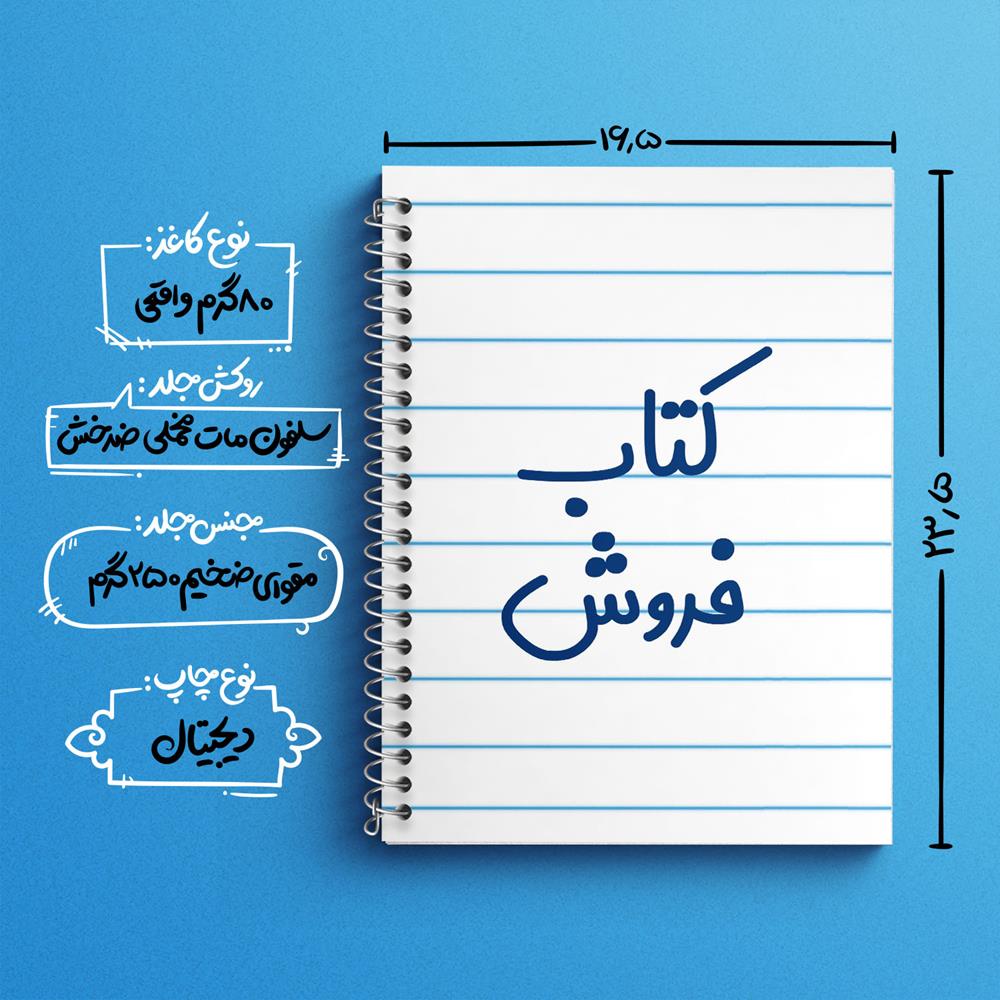 ۱۶٫۵
۲۳٫۵
نوع کاغذ:
۸۰گرم واقعی
روکش جلد:
سلفون مات مخملی ضدخش
جنس جلد:
مقوای ضخیم ۲۵۰ گرم
نوع چاپ:
دیجیتال
کتاب
فروش